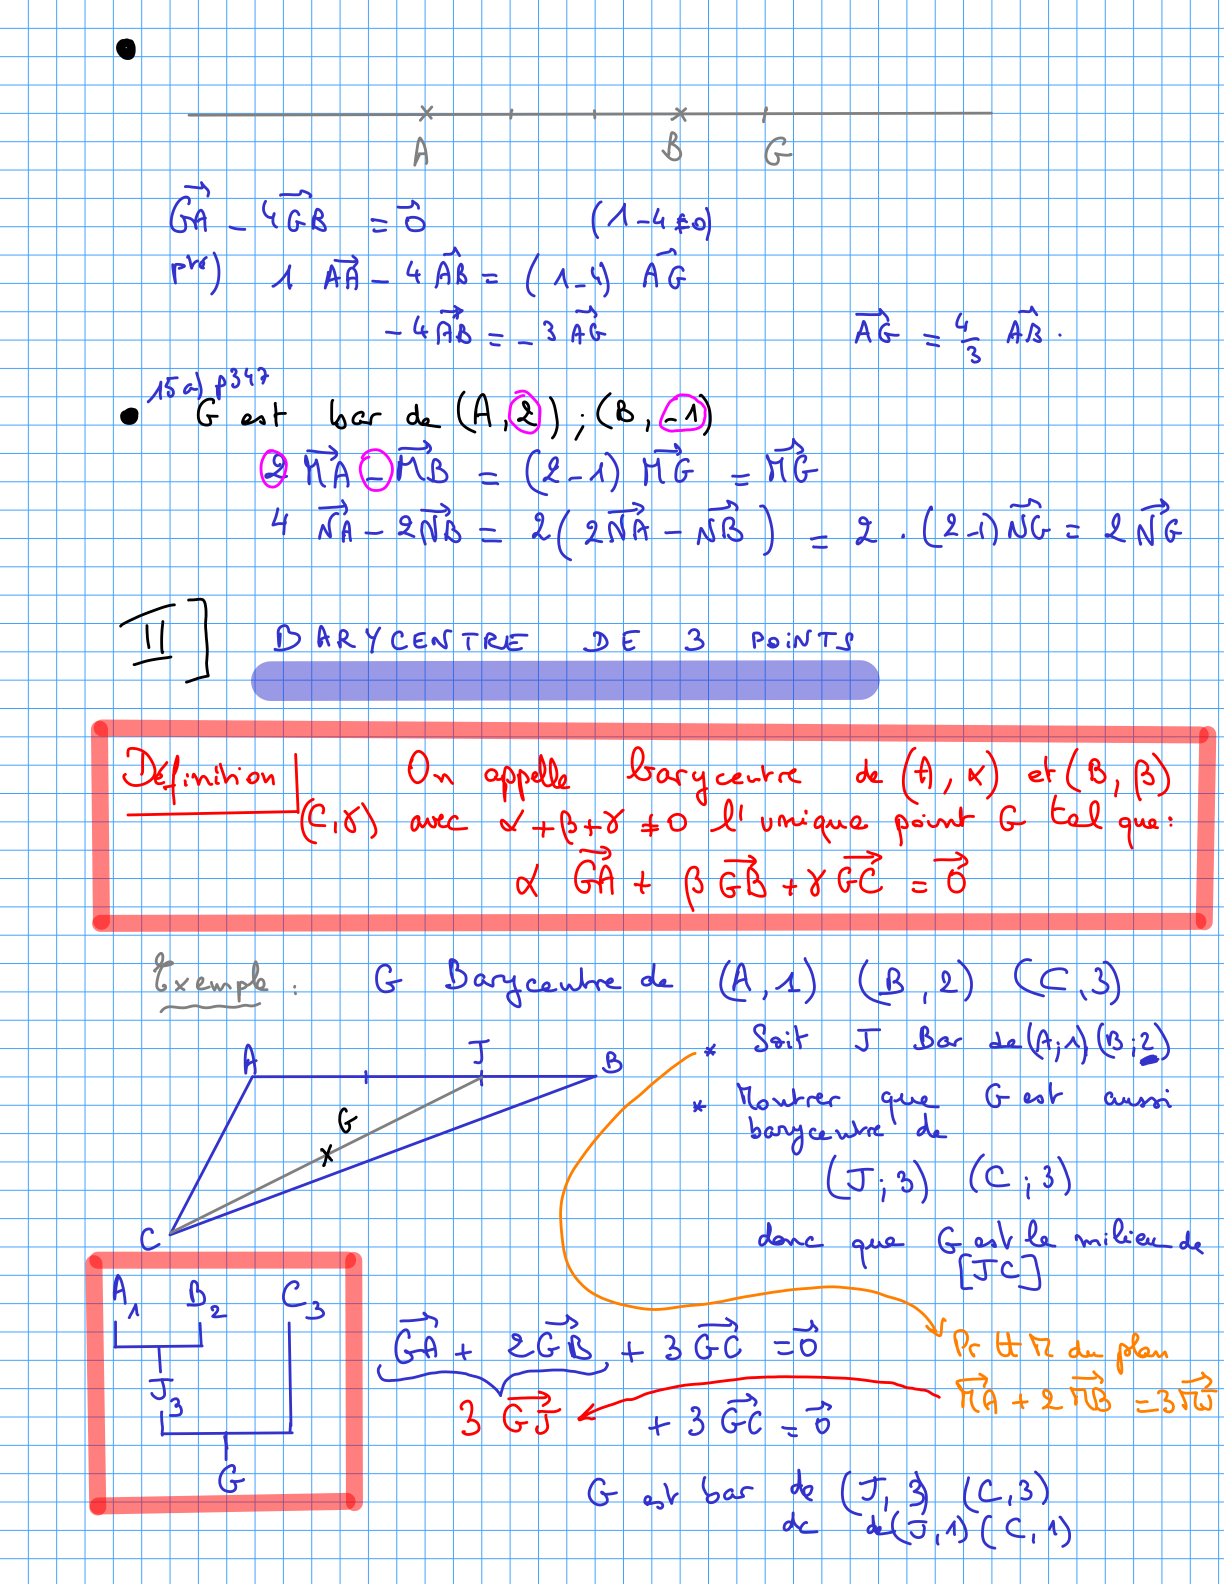 A B G
GA⃗ - 4GB⃗ = 0⃗ (1-4≠0)
pté) 1 AA⃗ - 4 AB⃗ = (1-4) AG⃗
- 4AB⃗ = -3 AG⃗ AG⃗ = 4/3 AB⃗.
15a) p347
G est bar de (A, 2) ; (B, -1)
2 MA⃗ - MB⃗ = (2-1) MG⃗ = MG⃗
4 NA⃗ - 2NB⃗ = 2(2NA⃗ - NB⃗) = 2 . (2-1) NG⃗ = 2 NG⃗
II] BARYCENTRE DE 3 POiNTS
Définition On appelle barycentre de (A, α) et (B, β)
(C, γ) avec α+β+γ ≠ 0 l'unique point G tel que :
α GA⃗ + β GB⃗ + γ GC⃗ = 0⃗
Exemple : G Barycentre de (A, 1) (B, 2) (C, 3)
* Soit J Bar de (A;1) (B;2)
* Montrer que G est aussi
barycentre de
(J;3) (C;3)
donc que G est le milieu de
[JC]
A J B
G
C
A1 B2 C3
J3
G
GA⃗ + 2GB⃗ + 3 GC⃗ = 0⃗
Pr tt M du plan
MA⃗ + 2 MB⃗ = 3MJ⃗
3 GJ⃗ + 3 GC⃗ = 0⃗
G est bar de (J, 3) (C, 3)
dc de (J, 1) (C, 1)